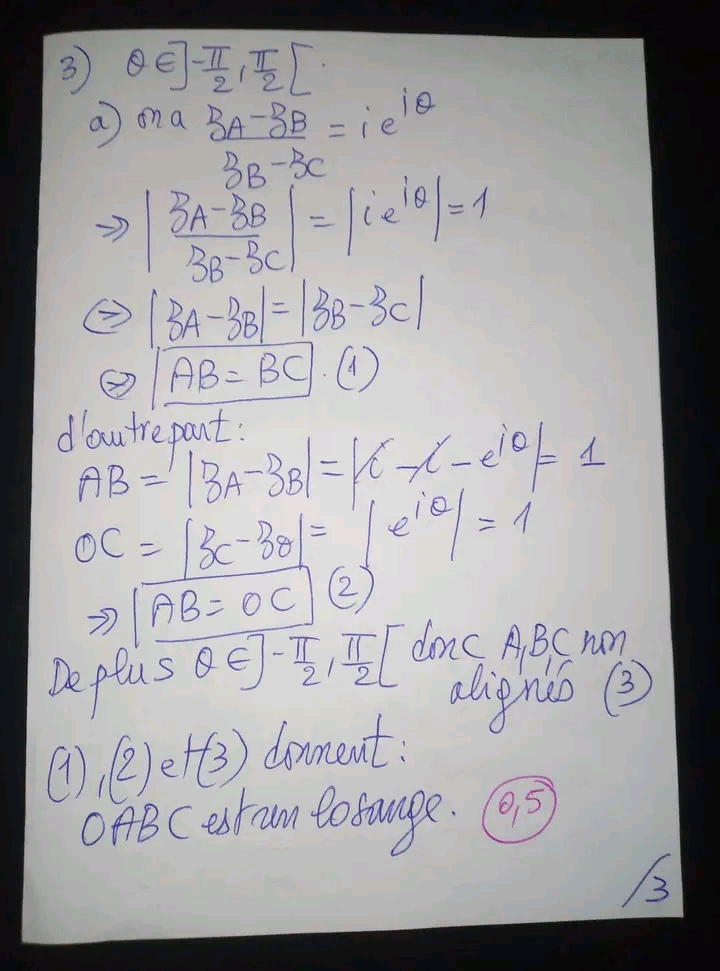 3) θ∈]-π/2, π/2[.
a) on a (zA-zB)/(zB-zC) = i e^{iθ}
=> |(zA-zB)/(zB-zC)| = |i e^{iθ}| = 1
<=> |zA-zB| = |zB-zC|
<=> AB = BC. (1)
d'autre part:
AB = |zA-zB| = |i-i-e^{iθ}| = 1
OC = |zC-zO| = |e^{iθ}| = 1
=> AB = OC (2)
De plus θ∈]-π/2, π/2[ donc A,B,C non
alignés (3)
(1), (2) et (3) donnent:
OABC est un losange. 0,5
/3